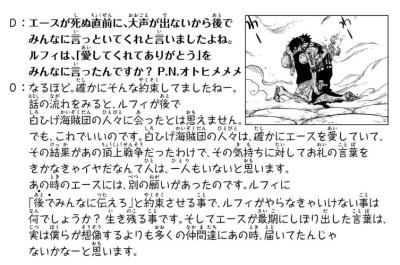 D：エースが死ぬ直前に、大声が出ないから後で
みんなに言っといてくれと言いましたよね。
ルフィは、「愛してくれてありがとう」を
みんなに言ったんですか？ P.N.オトヒメメメ
O：なるほど。確かにそんな約束してましたねー。
話の流れをみると、ルフィが後で
白ひげ海賊団の人々に会ったとは思えません。
でも、これでいいのです。白ひげ海賊団の人々は、確かにエースを愛していて、
その結果があの頂上戦争だったわけで、その気持ちに対してお礼の言葉を
きかなきゃイヤだなんて人は、一人もいないと思います。
あの時のエースには、別の願いがあったのです。ルフィに
「後でみんなに伝えろ」と約束させる事で、ルフィがやらなきゃいけない事は
何でしょうか？ 生き残る事です。そしてエースが最期にしぼり出した言葉は、
実は僕らが想像するよりも多くの仲間達にあの時、届いてたんじゃ
ないかなーと思います。